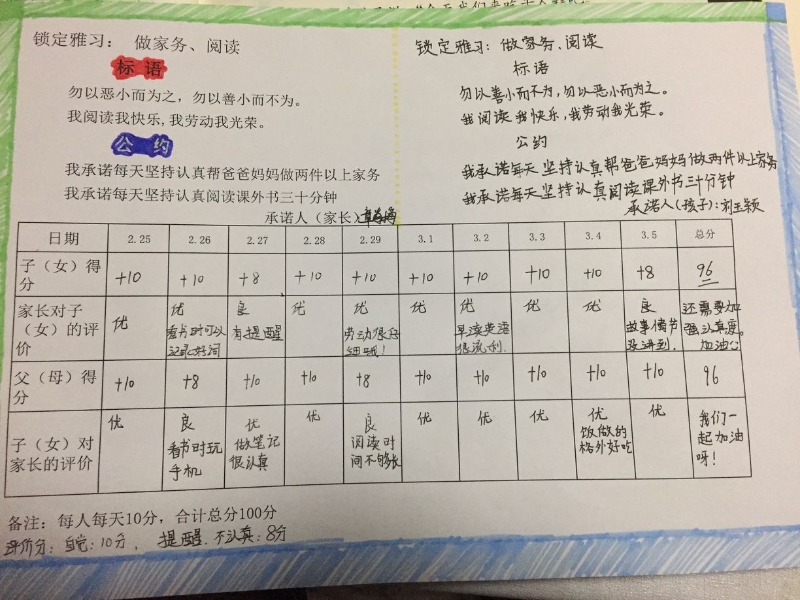 锁定雅习: 做家务、阅读
标语
勿以恶小而为之，勿以善小而不为。
我阅读我快乐,我劳动我光荣。
公约
我承诺每天坚持认真帮爸爸妈妈做两件以上家务
我承诺每天坚持认真阅读课外书三十分钟
承诺人（家长）
锁定雅习: 做家务、阅读
标语
勿以善小而不为,勿以恶小而为之。
我阅读我快乐,我劳动我光荣。
公约
我承诺每天坚持认真帮爸爸妈妈做两件以上家务
我承诺每天坚持认真阅读课外书三十分钟
承诺人(孩子):刘玉颖
日期 2.25 2.26 2.27 2.28 2.29 3.1 3.2 3.3 3.4 3.5 总分
子（女）得分 +10 +10 +8 +10 +10 +10 +10 +10 +10 +8 96
家长对子（女）的评价 优 优 看书时可以记录好词 良 有提醒 优 优 劳动很仔细哦! 优 优 早读英语很流利. 优 优 良 故事情节没讲到. 还需要加强认真度。加油!
父（母）得分 +10 +8 +10 +10 +8 +10 +10 +10 +10 +10 96
子（女）对家长的评价 优 良 看书时玩手机 优 做笔记很认真 优 良 阅读时间不够长 优 优 优 优 饭做的格外好吃 优 我们一起加油呀!
备注: 每人每天10分，合计总分100分
评价分: 自觉:10分, 提醒.不认真:8分